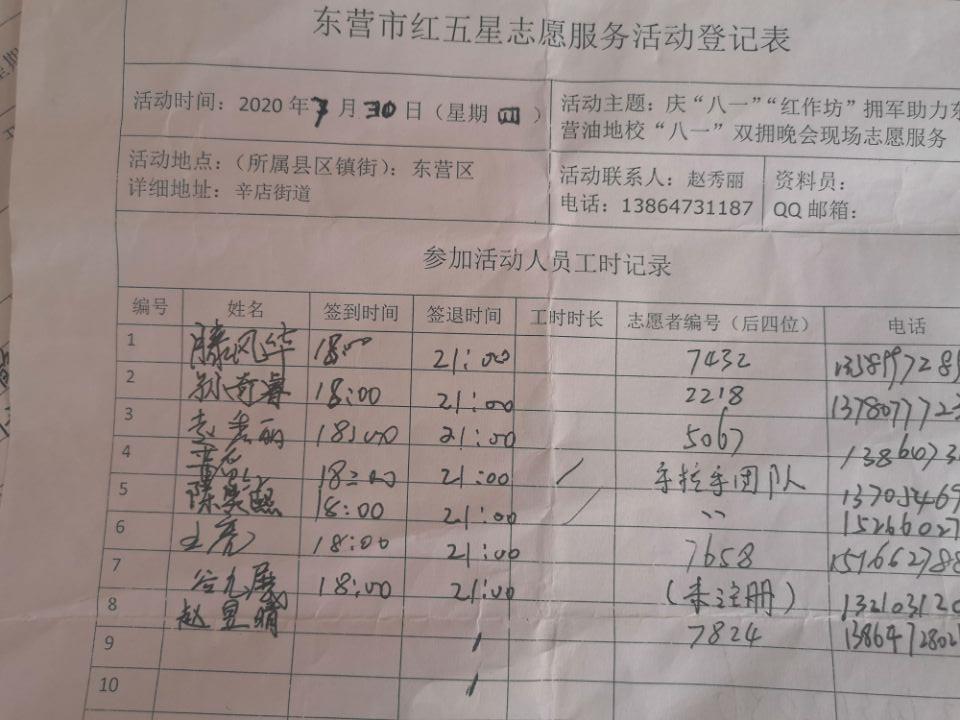 东营市红五星志愿服务活动登记表
活动时间：2020年7月30日（星期四）
活动主题：庆“八一”“红作坊”拥军助力东
营油地校“八一”双拥晚会现场志愿服务
活动地点：（所属县区镇街）：东营区
详细地址：辛店街道
活动联系人：赵秀丽
电话：13864731187
资料员：
QQ邮箱：
参加活动人员工时记录
编号 姓名 签到时间 签退时间 工时时长 志愿者编号（后四位） 电话
1 滕风华 18:00 21:00 7432 135899728
2 孙奇睿 18:00 21:00 2218 137807772
3 赵秀丽 18:00 21:00 5067 1386473
4 18:00 21:00 手拉手团队 13705469
5 陈奕熙 18:00 21:00 〃 15266027
6 王亮 18:00 21:00 7658 151662788
7 18:00 21:00 （未注册） 132103120
8 赵昱晴 7824 1386472802
9
10